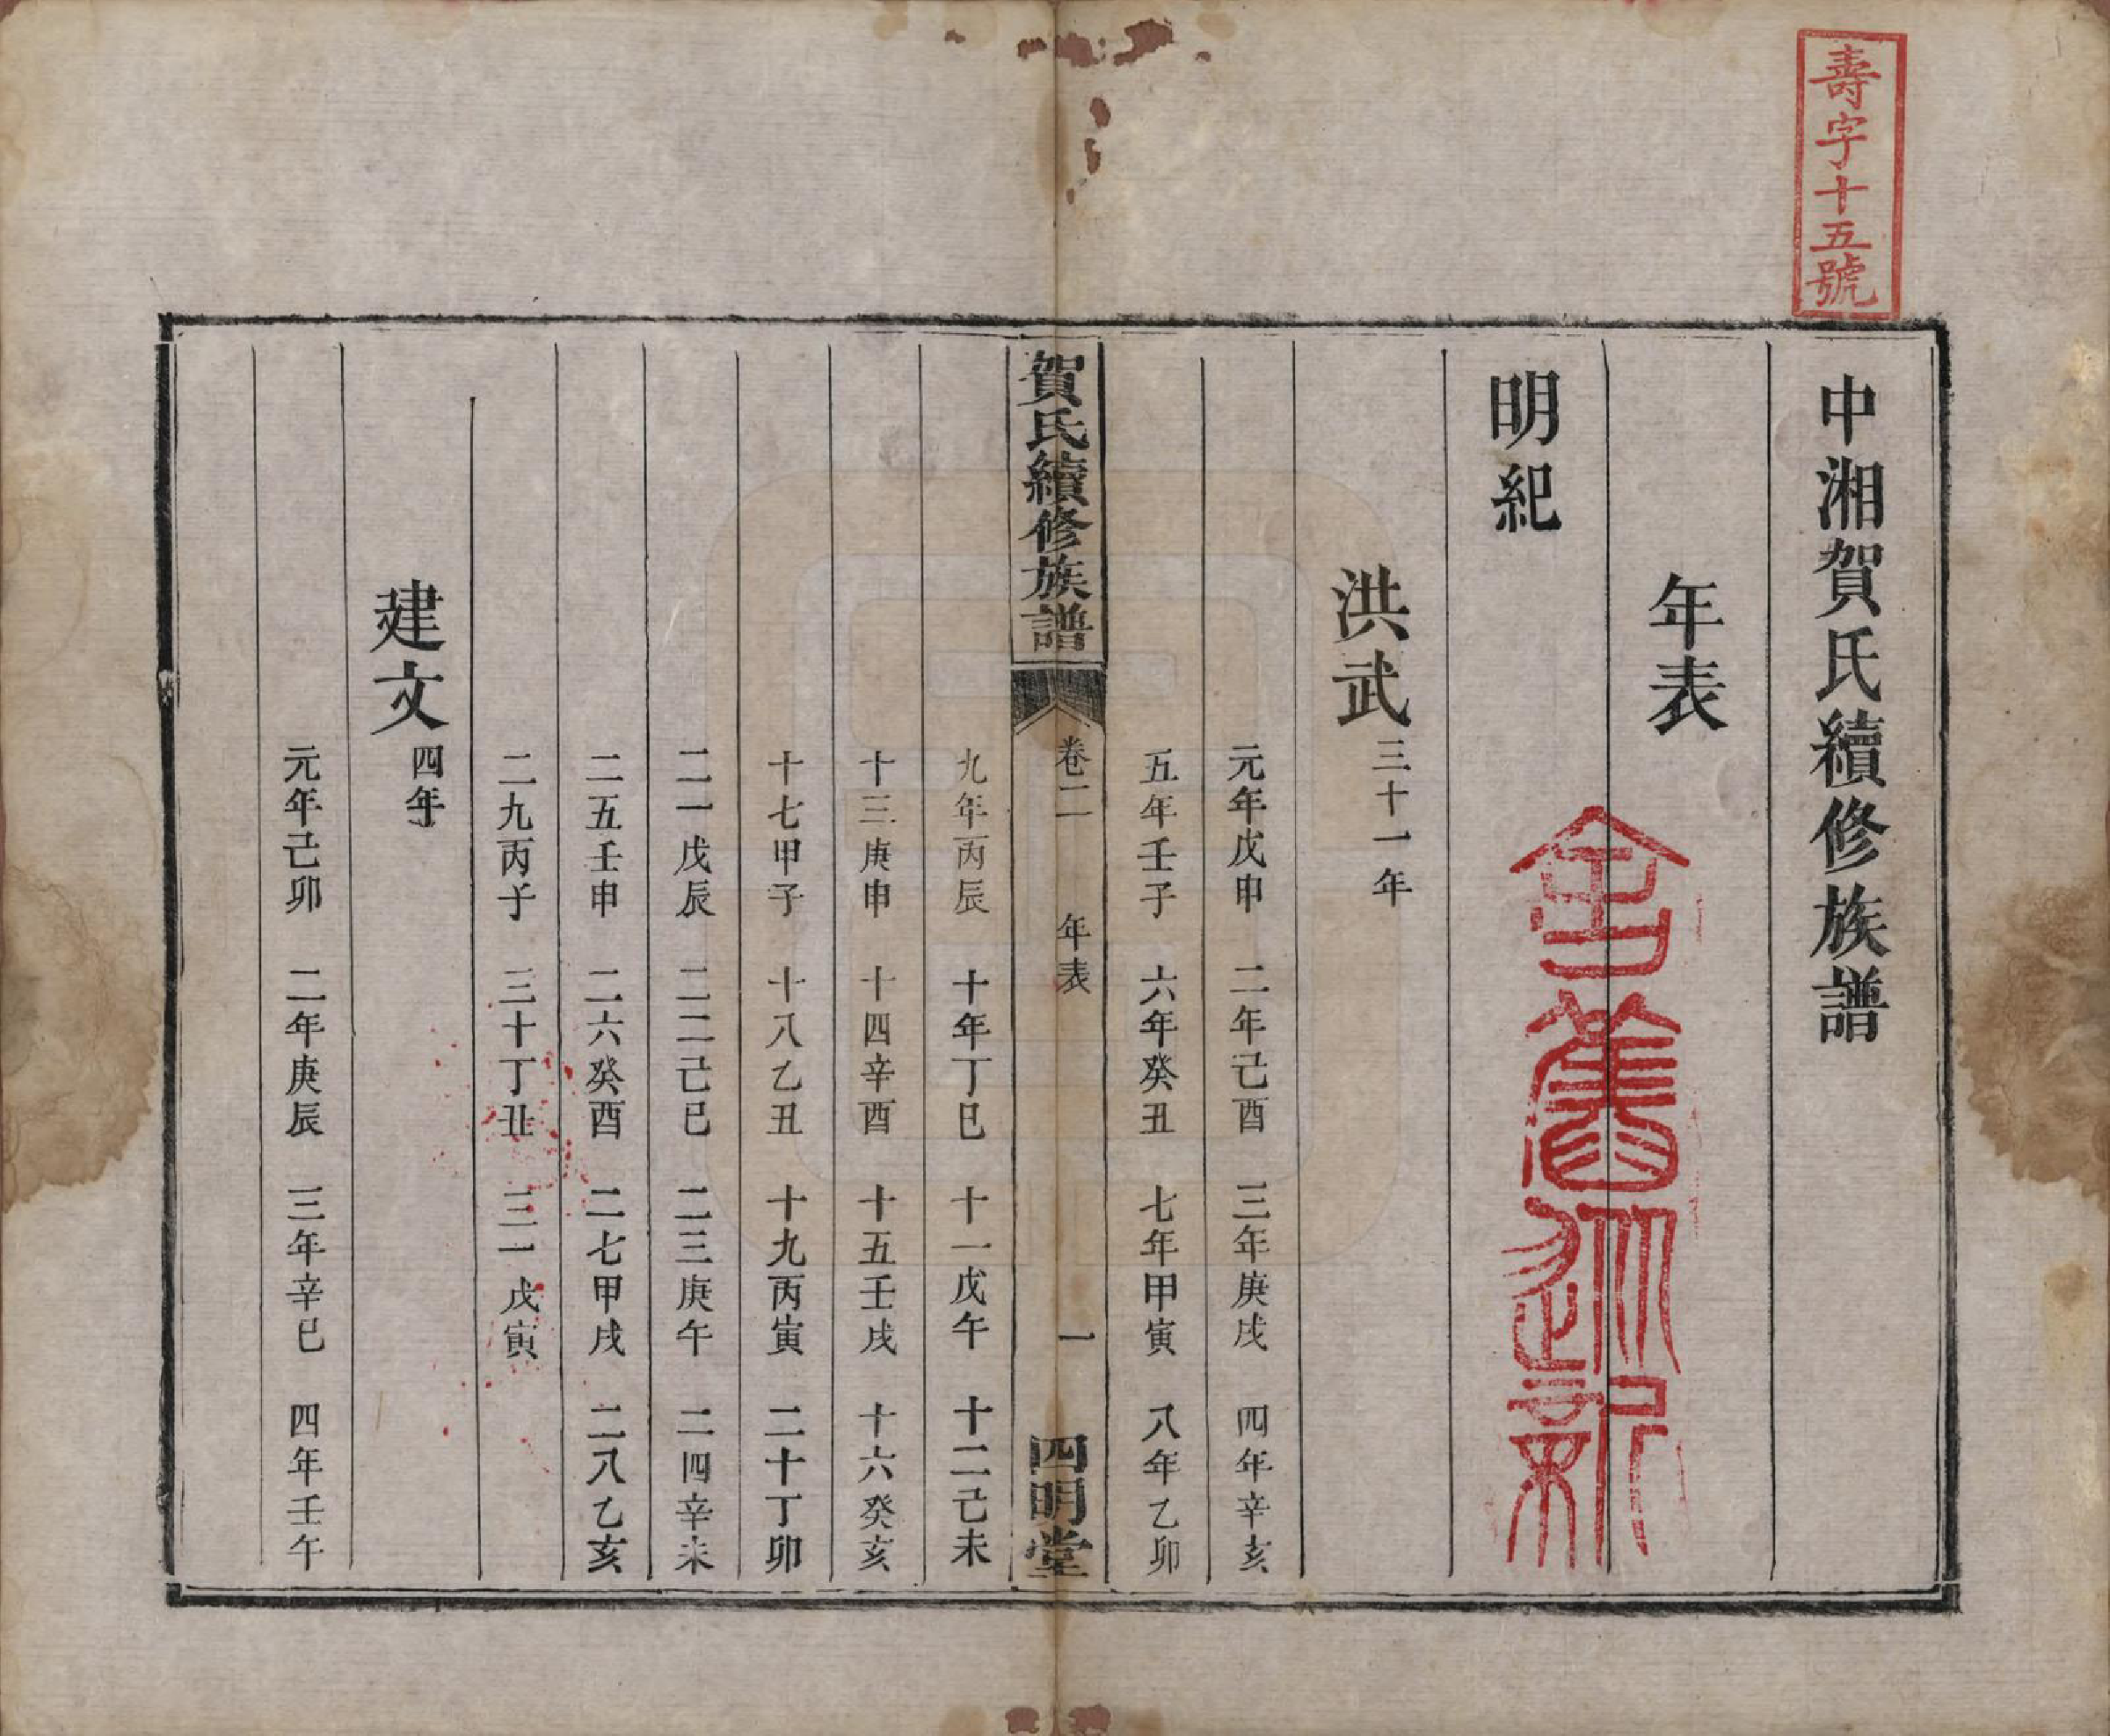 壽字十五號
中湘賀氏續修族譜
年表
明紀
洪武三十一年
元年戊申 二年己酉 三年庚戌 四年辛亥
五年壬子 六年癸丑 七年甲寅 八年乙卯
賀氏續修族譜 卷二 年表 一 四明堂
九年丙辰 十年丁巳 十一戊午 十二己未
十三庚申 十四辛酉 十五壬戌 十六癸亥
十七甲子 十八乙丑 十九丙寅 二十丁卯
二一戊辰 二二己巳 二三庚午 二四辛未
二五壬申 二六癸酉 二七甲戌 二八乙亥
二九丙子 三十丁丑 三一戊寅
建文四年
元年己卯 二年庚辰 三年辛巳 四年壬午